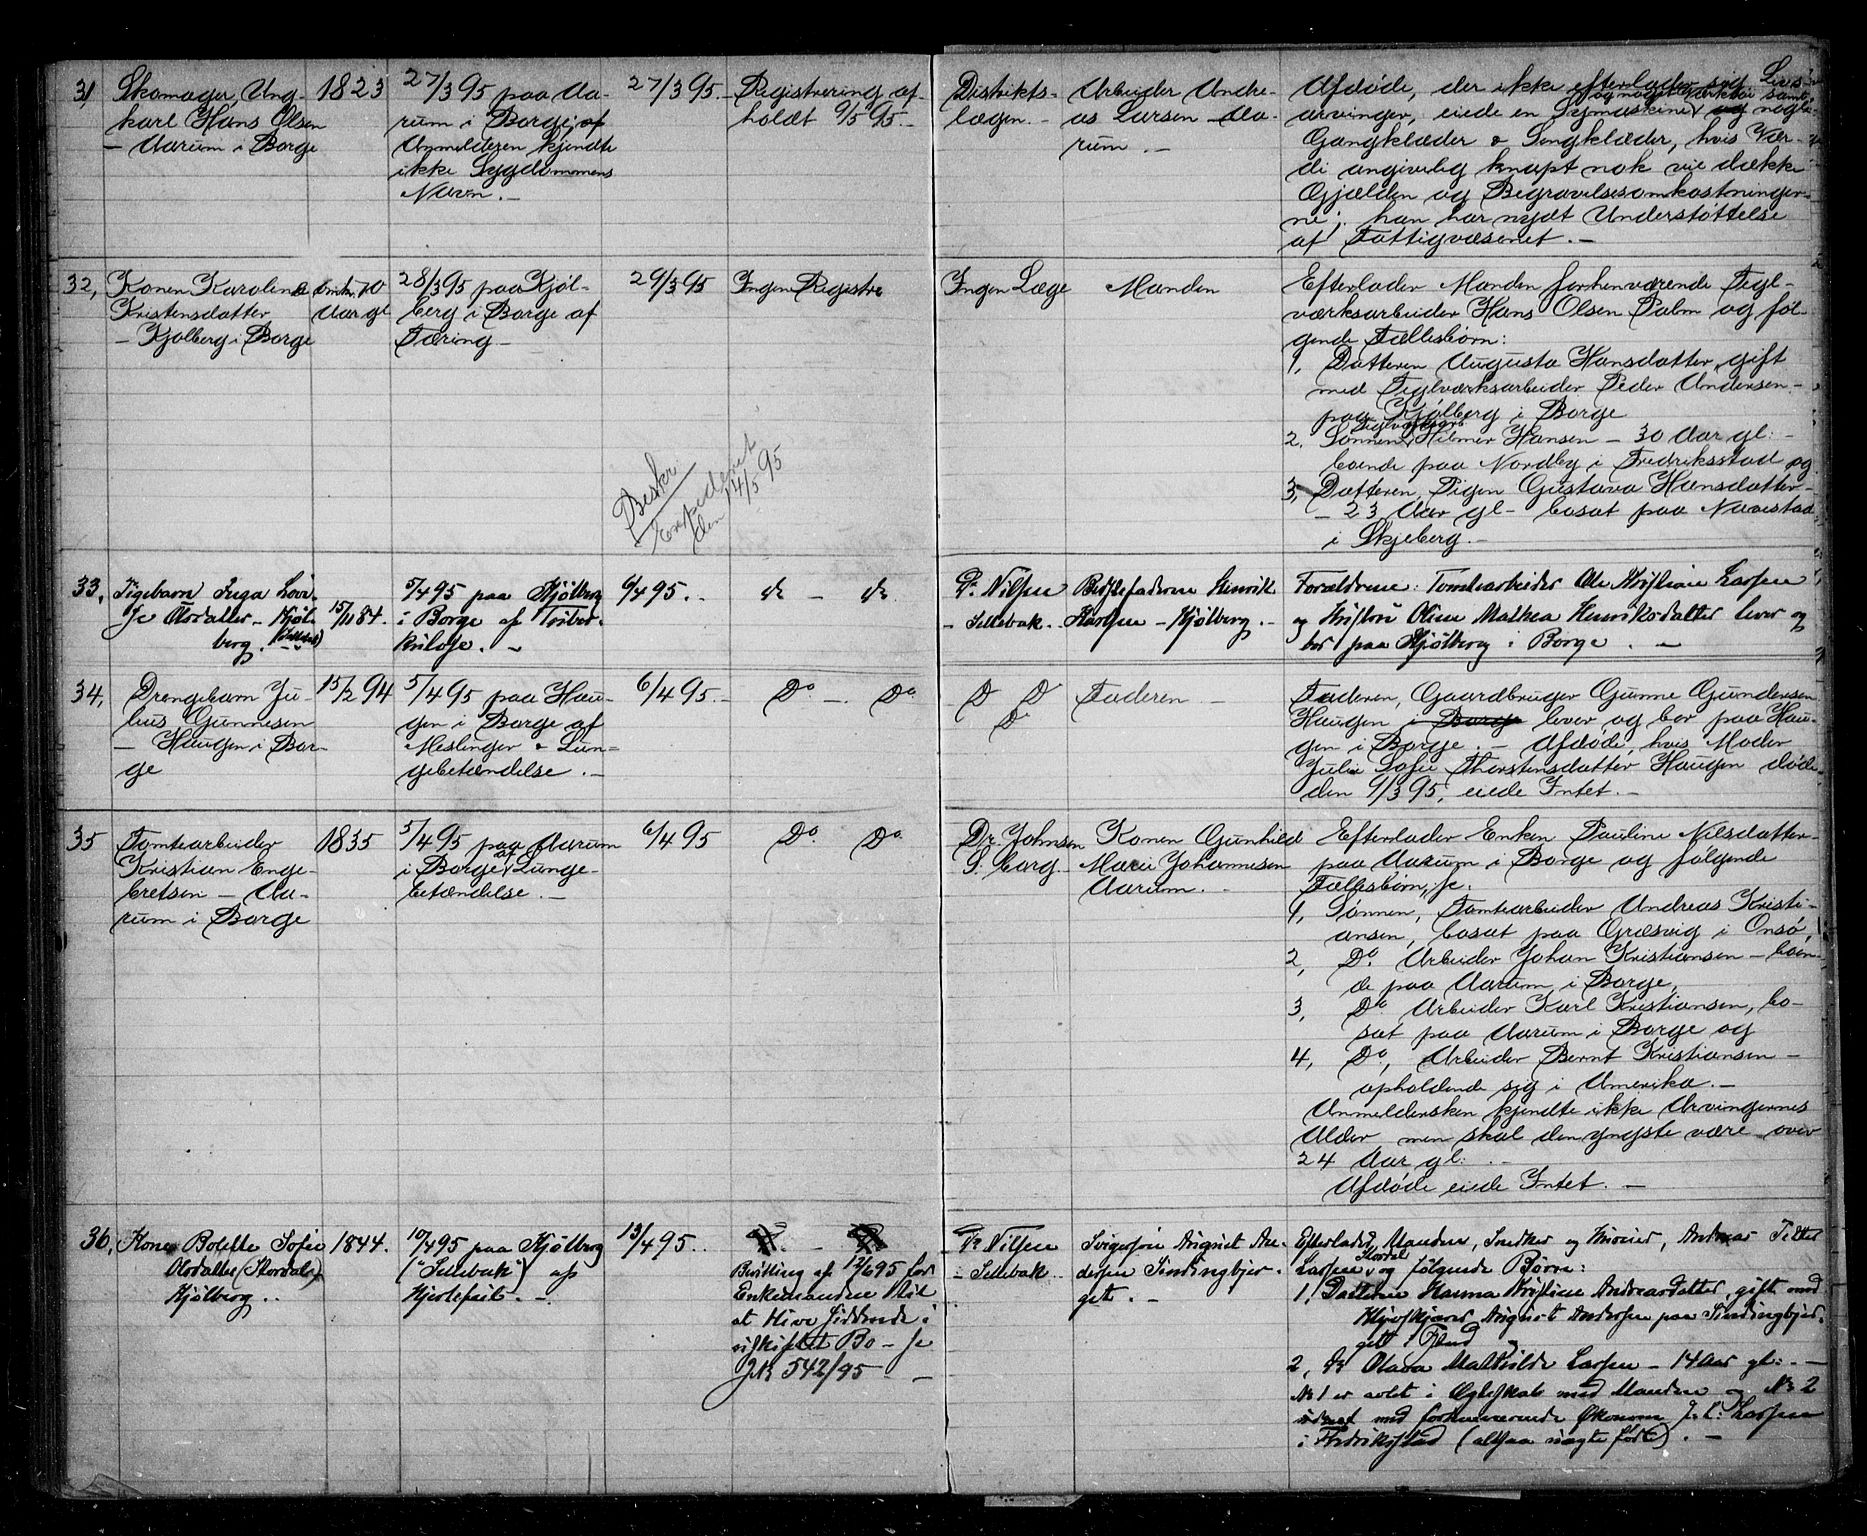 31
Skomager, Ung-
karl Hans Olsen
- Aarum i Borge
1823
27/3 95 paa Aa-
rum i Borge, af
Anmelderen kjendte
ikke Sygdommens
Navn. -
27/3 95. -
Registrering af-
holdt 9/5 95. -
Distrikts-
lægen. -
Arbeider Andre-
as Larsen - Aa-
rum. -
Afdøde, der ikke efterlader sig Livs-
arvinger, eiede en Symaskine og nogle
Gangklæder & Sengklæder, hvis Vær-
di angivelig knapt nok vil dække
Gjælden og Begravelsesomkostninger-
ne; han har nydt Understøttelse
af Fattigvæsenet. -
32,
Konen Karoline
Kristensdatter
- Kjølberg i Borge
omkr. 70
Aar gl
28/3 95 paa Kjøl-
berg i Borge af
Tæring -
29/3 95
Ingen Registre
Ingen Læge
Manden
Efterlader Manden forhenværende Tegl-
værksarbeider Hans Olsen Palm og føl-
gende Fællesbørn:
1, Datteren Augusta Hansdatter, gift
med Teglværksarbeider Peder Andersen -
paa Kjølberg i Borge
2. Sønnen Hilmer Hansen - 30 Aar gl: -
boende paa Nordby i Fredriksstad og
3, Datteren, Pigen Gustava Hansdatter -
- 23 Aar gl - bosat paa Navestad
i Skjeberg. -
Beskr.
Expederet
den 14/5 95
33,
Pigebarn Inga Lovi-
se Olsdatter - Kjøl-
berg.
15/11 84.
5/4 95 paa Kjølberg
i Borge af Tuber-
kulose. -
6/4 95. -
do - do
Dr Nilsen
- Sellebak. -
Bedstefaderen Henrik
Karlsen - Kjølberg. -
Forældrene: Tomtearbeider Ole Kristian Larsen
og Hustru Oline Mathea Henriksdatter lever og
bor paa Kjølberg i Borge. -
34,
Drengebarn Ju-
lius Gunnesen
- Haugen i Bor-
ge
15/2 94
5/4 95 paa Hau-
gen i Borge af
Meslinger & Lun-
gebetændelse. -
6/4 95. -
Do - Do
D D
Do
Faderen -
Faderen, Gaardbruger Gunne Gundersen
Haugen i Borge lever og bor paa Hau-
gen i Borge. - Afdøde, hvis Moder
Julie Sofie Thorstensdatter Haugen døde
den 9/3 95, eiede Intet. -
35
Tomtearbeider
Kristian Enge-
bretsen - Aa-
rum i Borge
1835
5/4 95 paa Aarum
i Borge af Lunge-
betændelse. -
6/4 95
Do Do
Dr. Johnsen
S. borg. -
Konen Gunhild
Marie Johannesen
Aarum. -
Efterlader Enken Pauline Nilsdatter -
paa Aarum i Borge og følgende
Fællesbørn,
1, Sønnen, Tomtearbeider Andreas Kristi-
ansen, bosat paa Græsvig i Onsø,
2, Do Arbeider Johan Kristiansen - boen-
de paa Aarum i Borge,
3, Do Arbeider Karl Kristiansen, bo-
sat paa Aarum i Borge og
4, Do, Arbeider Bernt Kristiansen -
opholdende sig i Amerika. -
Anmeldersken kjendte ikke Arvingernes
Alder men skal den yngste være over
24 Aar gl: -
Afdøde eiede Intet. -
36,
Kone Bolette Sofie
Olsdatter (Stordal)
Kjølberg. -
1844.
10/4 95 paa Kjølberg
("Sellebak") af
Hjertefeil. -
13/4 95. -
Bevilling af 12/6 95 for
Enkemanden til
at blive siddende i
uskiftet Bo - Se
JN 542/95 -
Dr Nilsen
- Sellebak
Svigersøn August An-
dersen Sindingbjer-
get. -
Efterladt Manden, Snedker og Huseier, Andreas Peder
Larsen Stordal og følgende Børn:
1, Datteren Hanna Kristine Andreasdatter, gift med
August Andersen paa Sindingbjer-
get i
2, do Olava Mathilde Larsen - 14 Aar gl: -
No 1 er avlet i Ægteskab med Manden og No 2
med forhenværende Økonom J. L: Larsen
i Fredriksstad (altsaa uægte født). -